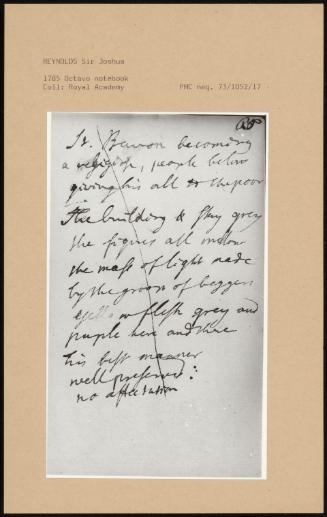 REYNOLDS Sir Joshua
1785 Octavo notebook
Coll: Royal Academy
PMC neg. 73/1052/17
St. Bavon becoming
a religious, people below
giving his all to the poor
The building & sky grey
the figures all mellow
the mass of light made
by the groop of beggers
yellow flesh grey and
purple here and there
his best manner
well preserved:
no affectation